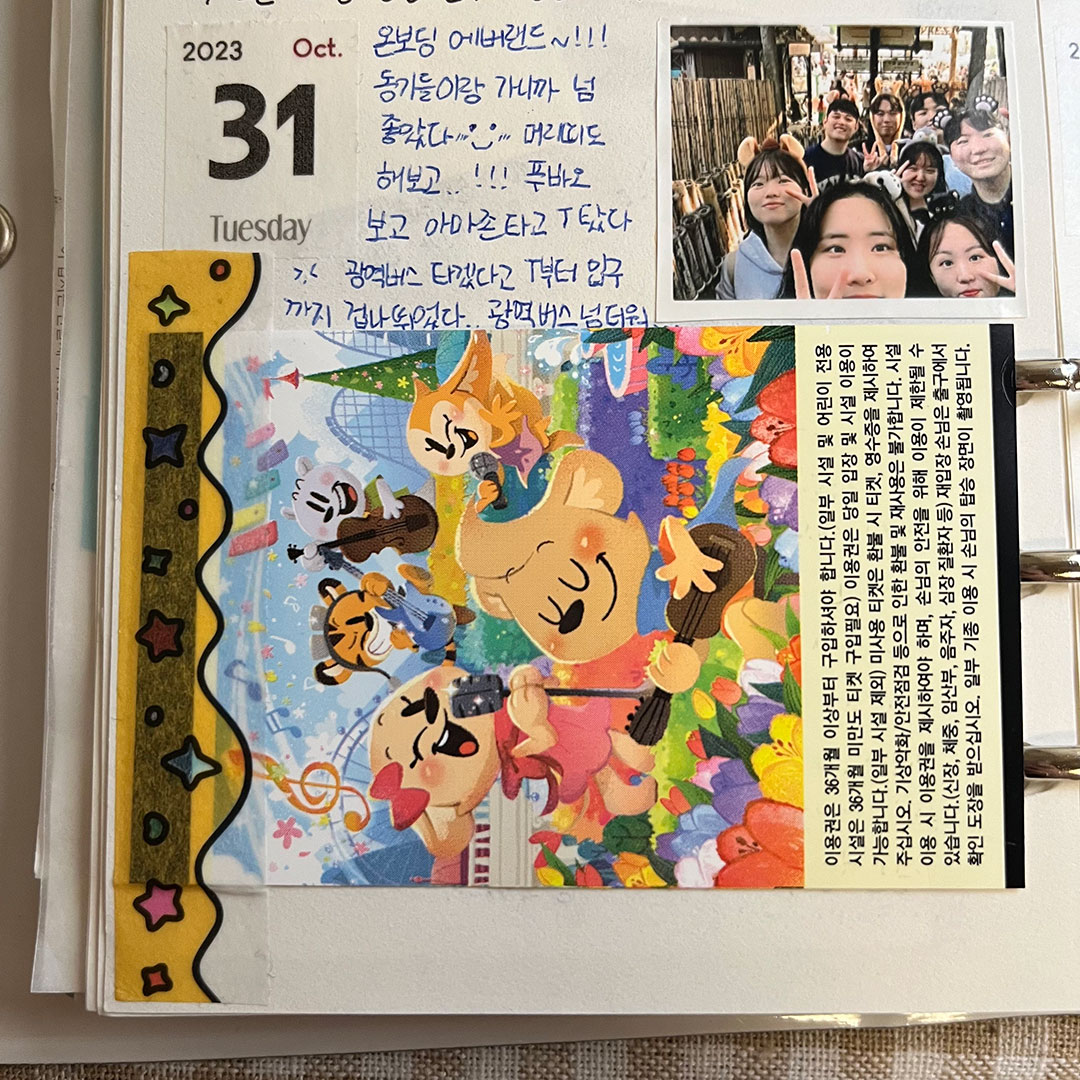 2023 Oct.
31
Tuesday
온보딩 에버랜드~!!!
동기들이랑 가니까 넘
좋았다 머리띠도
해보고..!!! 푸바오
보고 아마존타고 T 탔다
>.< 광역버스 타겠다고 T부터 입구
까지 겁나뛰었다.. 광역버스넘더워...
이용권은 36개월 이상부터 구입하셔야 합니다.(일부 시설 및 어린이 전용
시설은 36개월 미만도 티켓 구입필요) 이용권은 당일 입장 및 시설 이용이
가능합니다.(일부 시설 제외) 미사용 티켓은 환불 시 티켓, 영수증을 제시하여
주십시오. 기상악화/안전점검 등으로 인한 환불 및 재사용은 불가합니다. 시설
이용 시 이용권을 제시하여야 하며, 손님의 안전을 위해 이용이 제한될 수
있습니다.(신장, 체중, 임산부, 음주자, 심장 질환자 등) 재입장 손님은 출구에서
확인 도장을 받으십시오. 일부 기종 이용 시 손님의 탑승 장면이 촬영됩니다.